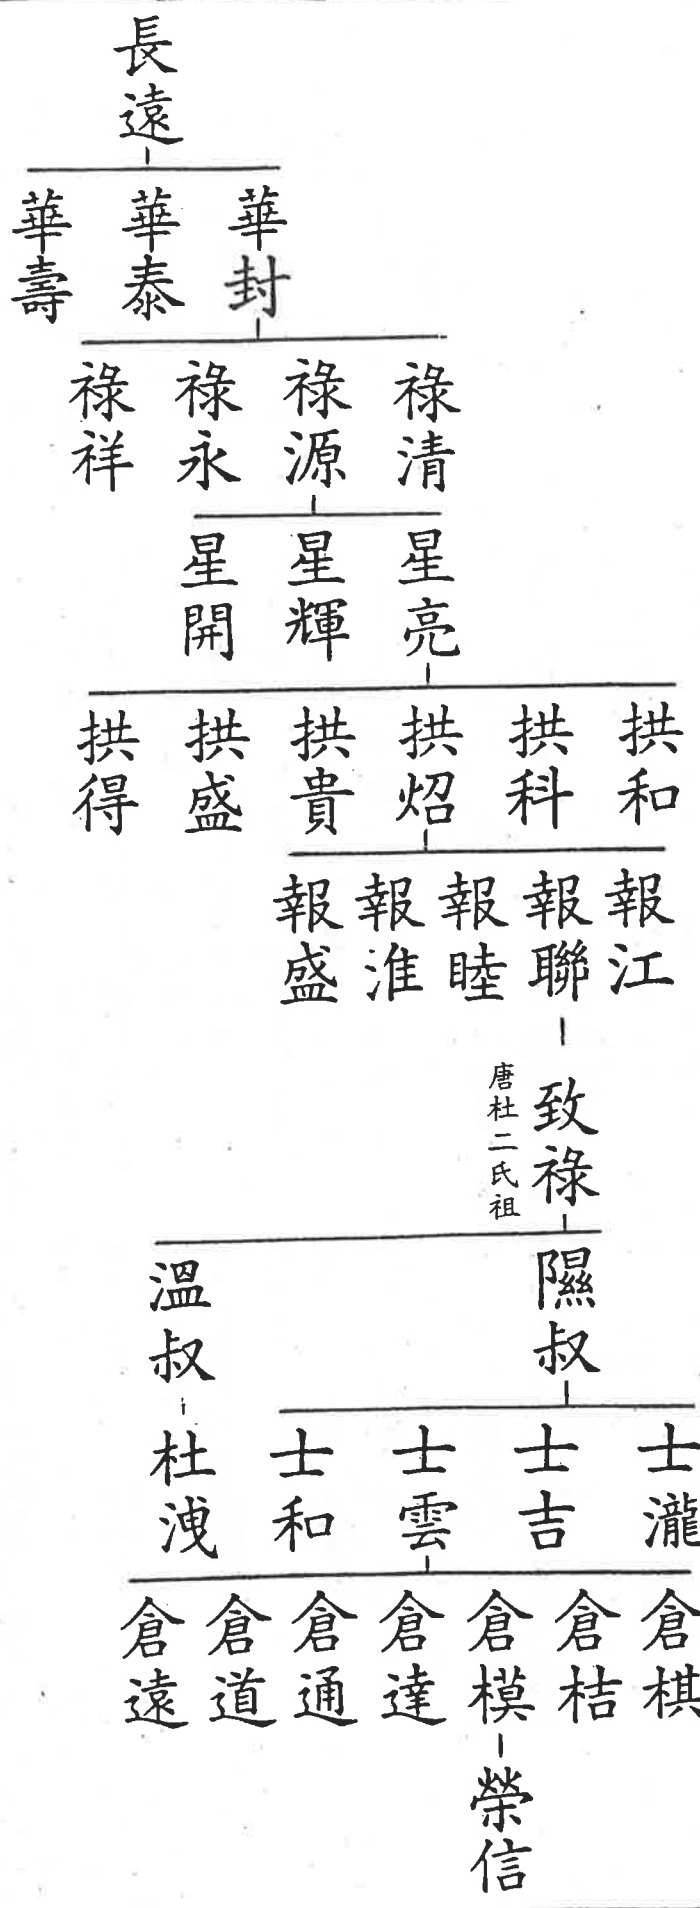 長遠
華封 華泰 華壽
祿清 祿源 祿永 祿祥
星亮 星輝 星開
拱和 拱科 拱炤 拱貴 拱盛 拱得
報江 報聯 報睦 報淮 報盛
致祿
唐杜二氏祖
隰叔 溫叔
士瀧 士吉 士雲 士和 杜洩
倉棋 倉桔 倉模 倉達 倉通 倉道 倉遠
榮信